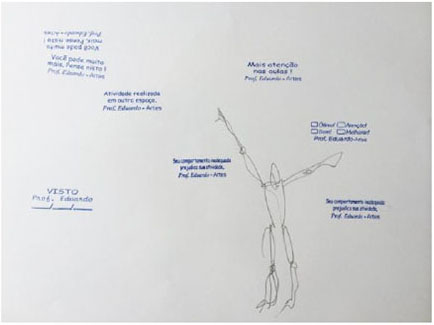 Você pode muito
mais, Pense nisto !
Prof. Eduardo - Artes
Você pode muito
mais, Pense nisto !
Prof. Eduardo - Artes
Mais atenção
nas aulas !
Prof. Eduardo - Artes
Atividade realizada
em outro espaço.
Prof. Eduardo - Artes
Ótimo! Atenção!
Bom! Melhorar!
Prof. Eduardo - Artes
Seu comportamento inadequado
prejudica sua atividade,
Prof. Eduardo - Artes
VISTO
Prof. Eduardo
__/__/__
Seu comportamento inadequado
prejudica sua atividade,
Prof. Eduardo - Artes